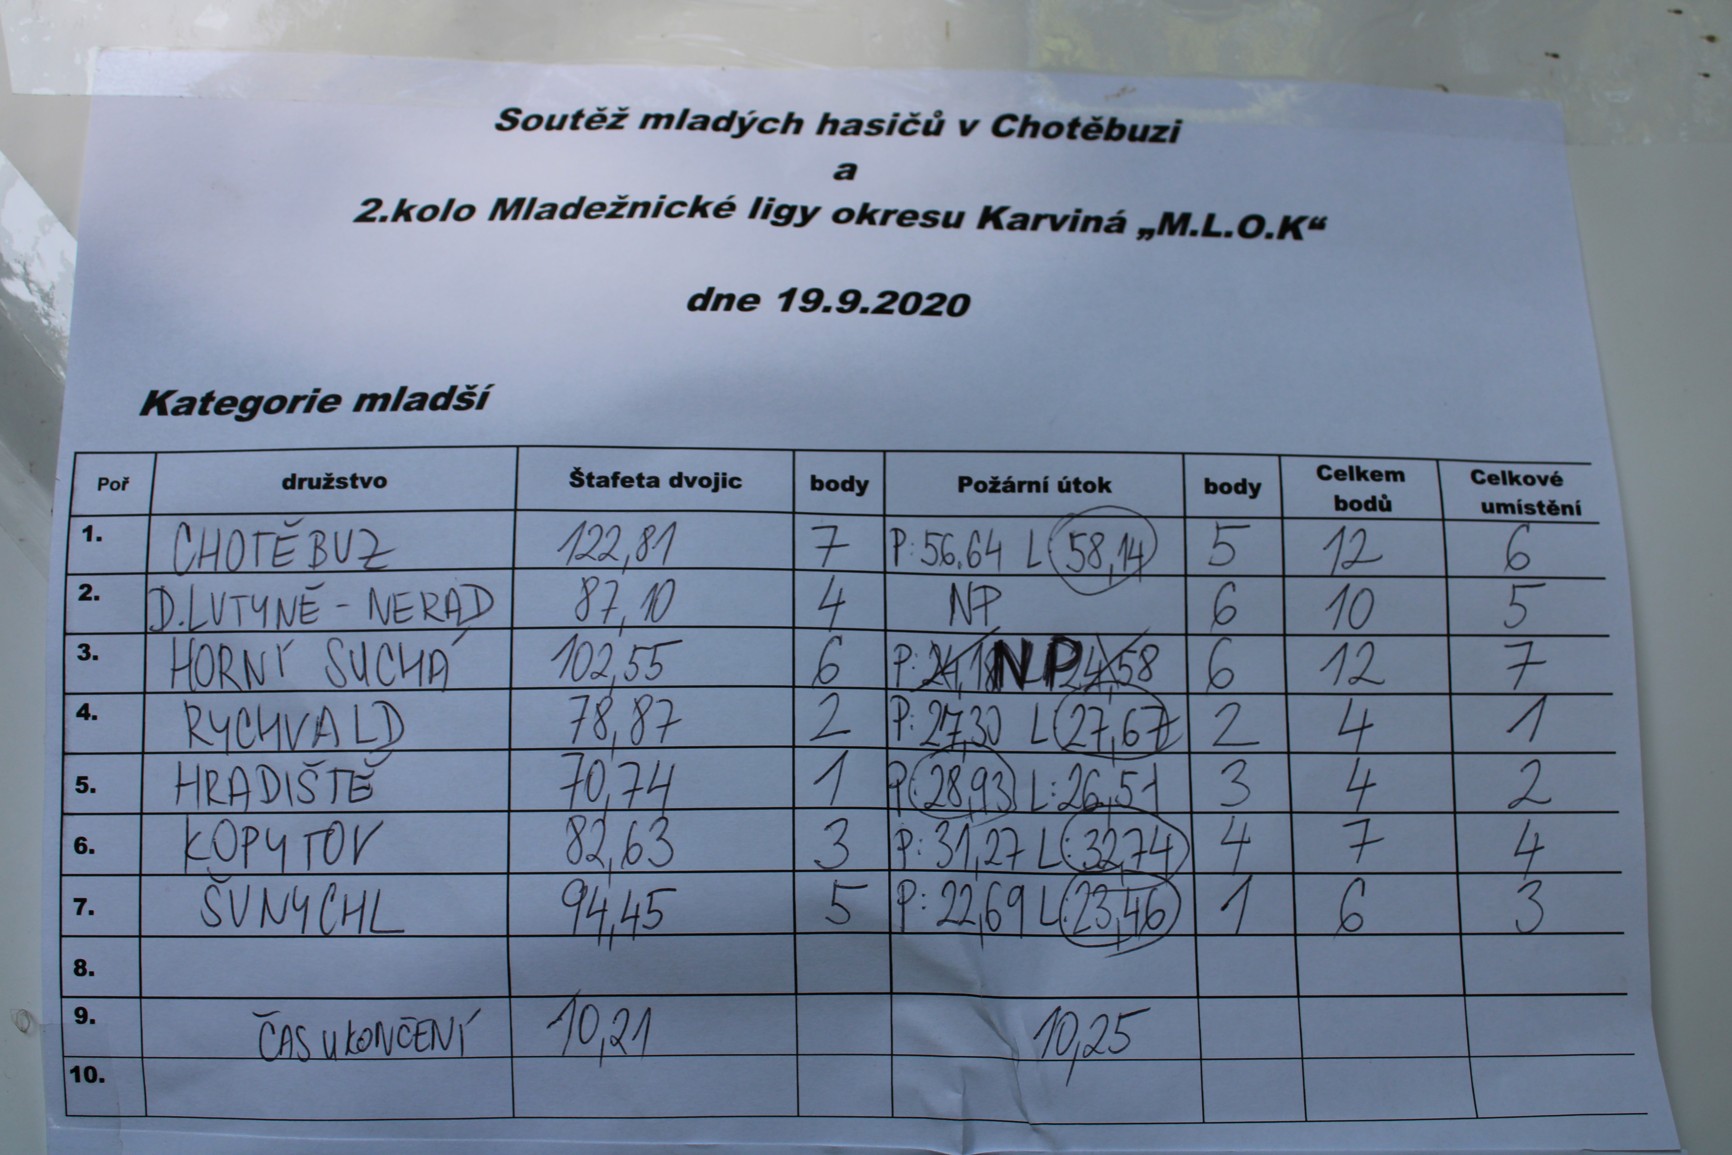 Soutěž mladých hasičů v Chotěbuzi
a
2.kolo Mladežnické ligy okresu Karviná „M.L.O.K“
dne 19.9.2020
Kategorie mladší
Poř družstvo Štafeta dvojic body Požární útok body Celkem bodů Celkové umístění
1. CHOTĚBUZ 122,81 7 P:56.64 L 58,14 5 12 6
2. D.LUTYNĚ - NERAD 87,10 4 NP 6 10 5
3. HORNÍ SUCHÁ 102,55 6 P: 24,18 NP 24,58 6 12 7
4. RYCHVALD 78,87 2 P: 27,30 L 27,67 2 4 1
5. HRADIŠTĚ 70,74 1 P: 28,93 L: 26,51 3 4 2
6. KOPYTOV 82,63 3 P: 31,27 L: 32,74 4 7 4
7. ŠUNYCHL 94,45 5 P: 22,69 L: 23,46 1 6 3
8.
9. ČAS UKONČENÍ 10,21 10,25
10.